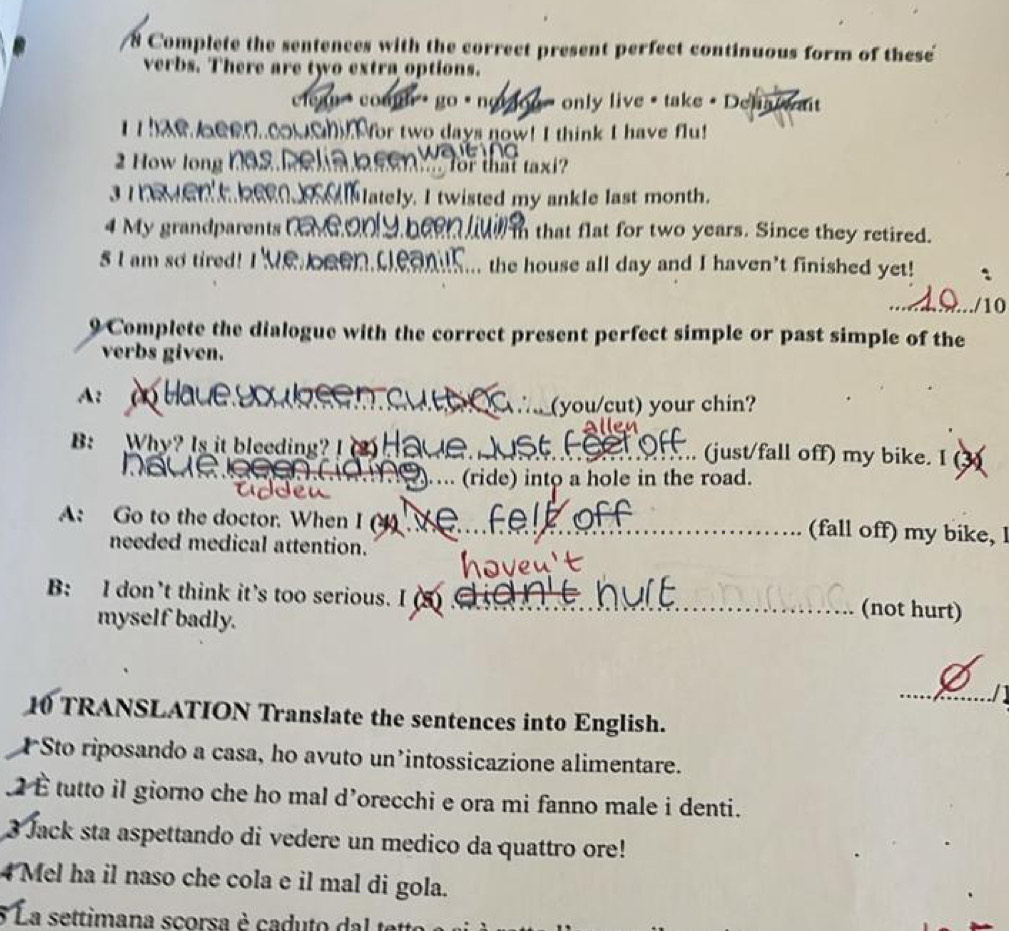 8 Complete the sentences with the correct present perfect continuous form of these
verbs. There are two extra options.
clean • cough • go • not jog • only live • take • Delia/wait
1 I have been coughing for two days now! I think I have flu!
2 How long has Delia been waiting for that taxi?
3 I haven't been jogging lately. I twisted my ankle last month.
4 My grandparents have only been living in that flat for two years. Since they retired.
5 I am so tired! I 've been cleaning ... the house all day and I haven't finished yet!
10 /10
9 Complete the dialogue with the correct present perfect simple or past simple of the
verbs given.
A: (1) Have you been cutting ... (you/cut) your chin?
allen
B: Why? Is it bleeding? I (2) Have Just feel off ... (just/fall off) my bike. I (3)
have been riding .... (ride) into a hole in the road.
ridden
A: Go to the doctor. When I (4) 've felt off ... (fall off) my bike, I
needed medical attention.
haven't
B: I don't think it's too serious. I (5) didn't hurt ... (not hurt)
myself badly.
0 /1
10 TRANSLATION Translate the sentences into English.
1 Sto riposando a casa, ho avuto un'intossicazione alimentare.
2 È tutto il giorno che ho mal d'orecchi e ora mi fanno male i denti.
3 Jack sta aspettando di vedere un medico da quattro ore!
4 Mel ha il naso che cola e il mal di gola.
5 La settimana scorsa è caduto dal tetto e si è